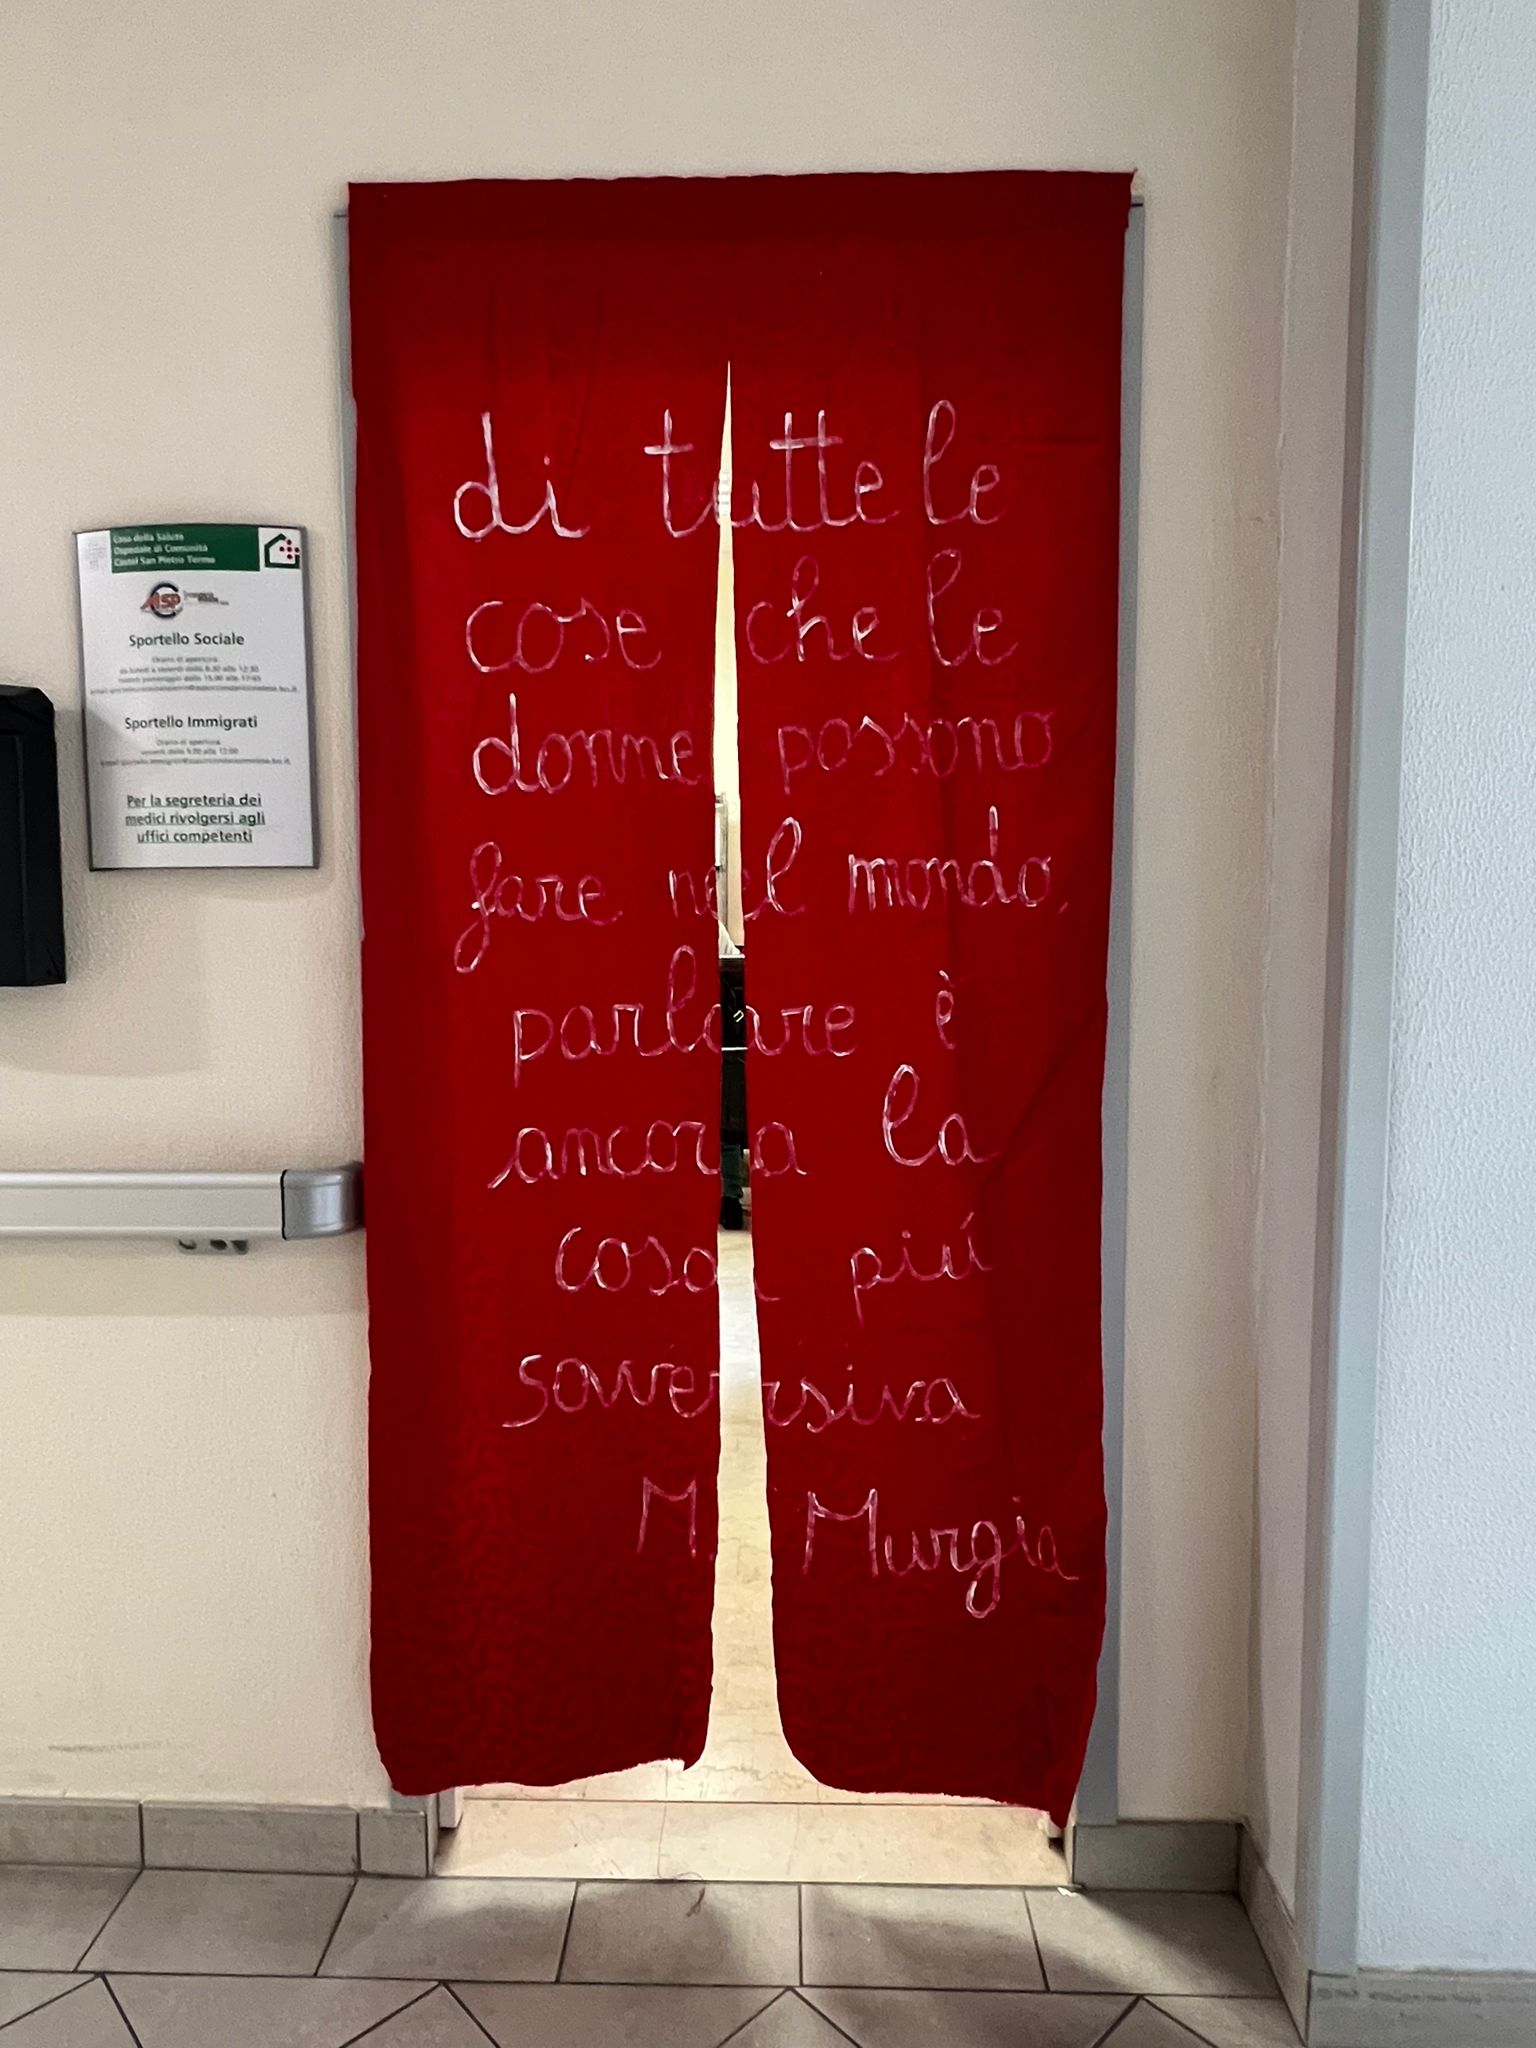 di tutte le
cose che le
donne possono
fare nel mondo,
parlare è
ancora la
cosa piú
sovversiva
M. Murgia
Casa della Salute
Ospedale di Comunità
Castel San Pietro Terme
ASP
Sportello Sociale
Orario di apertura
Sportello Immigrati
Orario di apertura
Per la segreteria dei
medici rivolgersi agli
uffici competenti